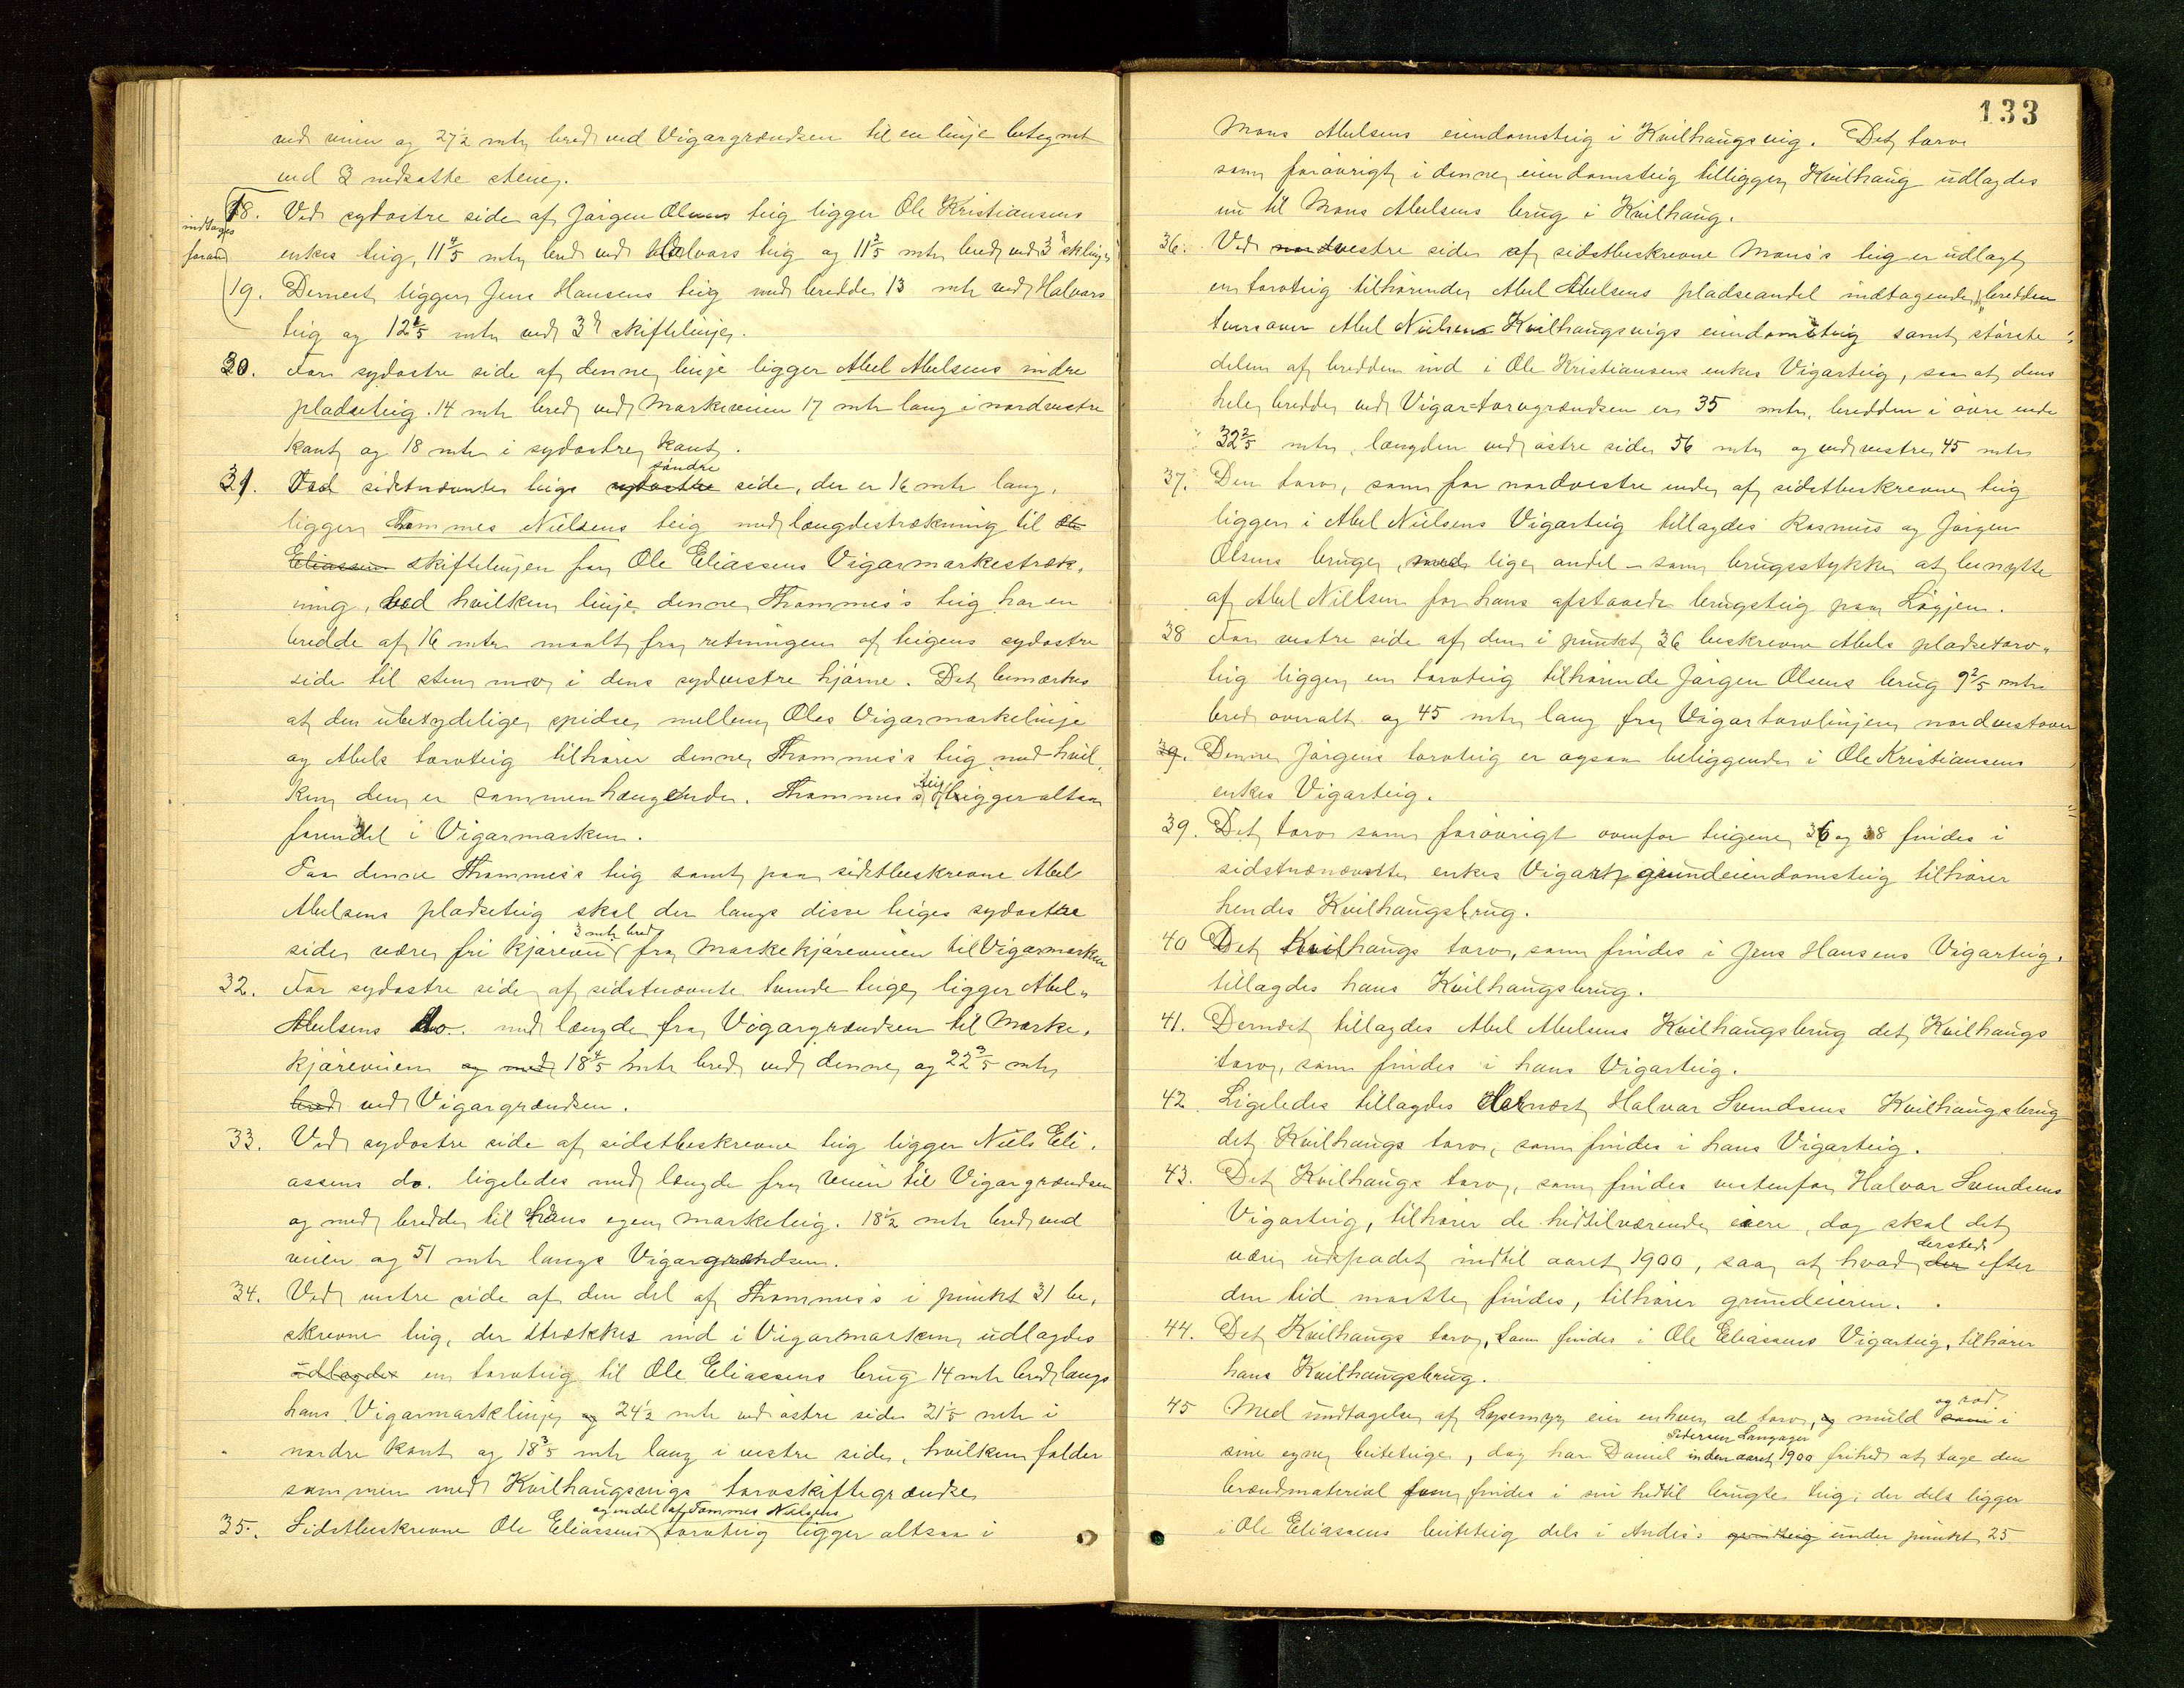 ved veien og 27½ mtr bred ved Vigargrændsen til en linje betegnet
ved 3 nedsatte stene.
18. Ved sydostre side af Jørgen Olsens teig ligger Ole Kristiansens
indtages
foran
enkes teig, 11 4/5 mtr bred ved Halvors teig og 11 2/5 mtr bred ved 3die skiftelinje
19. Dernest ligger Jens Hansens teig med bredde 13 mtr ved Halvors
teig og 12 2/5 mtr ved 3die skiftelinje.
30. For sydostre side af denne linje ligger Abel Abelsens indre
pladseteig. 14 mtr bred ved Markeveien 17 mtr lang i nordvestre
kant og 18 mtr i sydostre kant.
søndre
31. Ved sidstnævnte teigs sydostre side, der er 16 mtr lang,
ligger Thommes Nielsens teig med længdestrækning til Ole
Eliassens skiftelinjen for Ole Eliassens Vigarmarkestræk-
ning, ved hvilken linje denne Thommes's teig har en
bredde af 16 mtr maalt fra retningen af teigens sydostre
side til sten no 2 i dens sydvestre hjørne. Det bemærkes
at den ubetydelige spidse mellem Oles Vigarmarkelinje
og Abels torvteig tilhører denne Thommes's teig med hvil-
teig
ken den er sammenhængende. Thommes's ligger altsaa
forendel i Vigarmarken.
Paa denne Thommes's teig samt paa sidstbeskrevne Abel
Abelsens pladseteig skal der langs disse teiges sydostre
3 mtr bred
side være fri kjørevei fra Markekjøreveien til Vigarmarken
32. For sydostre side af sidstnævnte tvende teige ligger Abel
Abelsens do. med længde fra Vigargrændsen til Marke-
kjøreveien og med 18 4/5 mtr bred ved denne og 22 3/5 mtr
bred ved Vigargrændsen.
33. Ved sydostre side af sidstbeskrevne teig ligger Niels Eli-
assens do. ligeledes med længde fra veien til Vigargrændsen
og med bredde til hans egen marketeig. 18½ mtr bred ved
veien og 51 mtr langs Vigargrændsen.
34. Ved vestre side af den del af Thommes's i punkt 31 be-
skrevne teig, der strækkes ind i Vigarmarken, udlagdes
udlagdes en torvteig til Ole Eliassens brug 14 mtr bred langs
hans Vigarmarkelinje og 24½ mtr ved østre side 21 1/5 mtr i
nordre kant og 18 3/5 mtr lang i vestre side, hvilken falder
sammen med Kvilhaugsvigs torvskiftegrændse
og endel af Tommes Nielsens
35. Sidstbeskrevne Ole Eliassens torvteig ligger altsaa i
133
Mons Abelsens eiendomsteig i Kvilhaugsvig. Det torv
som forøvrigt i denne eiendomsteig tilligger Kvilhaug udlagdes
nu til Mons Abelsens brug i Kvilhaug.
36. Ved nordvestre side af sidstbeskrevne Mons's teig er udlagt
en torvteig tilhørende Abel Abelsens pladseandel indtagende bredden
tversover Abel Nielsens Kvilhaugsvigs eiendomsteig samt største-
delen af bredden ind i Ole Kristiansens enkes Vigarteig, saa at dens
hele bredde ved Vigar-torvgrændsen er 35 mtr, bredden i øvre ende
32 2/5 mtr, længden ved østre side 56 mtr og ved vestre 45 mtr
37. Den torv, som for nordvestre ende af sidstbeskrevne teig
ligger i Abel Nielsens Vigarteig tillagdes Rasmus og Jørgen
Olsens bruge, med lige andel – som brugsstykke at benytte
af Abel Nielsen for hans afstaaede brugsteig paa Løgjen.
38 For vestre side af den i punkt 36 beskrevne Abels pladsetorv-
teig ligger en torvteig tilhørende Jørgen Olsens brug 9 2/5 mtr
bred overalt og 45 mtr lang fra Vigartorvlinjen nordvestover
39. Denne Jørgens torvteig er ogsaa beliggende i Ole Kristiansens
enkes Vigarteig.
39. Det torv som forøvrigt ovenfor teigene 36 og 38 findes i
sidstnævnte enkes Vigars grundeiendomsteig tilhører
hendes Kvilhaugsbrug.
40 Det Kvilhaugs torv, som findes i Jens Hansens Vigarteig,
tillagdes hans Kvilhaugsbrug.
41. Dernæst tillagdes Abel Abelsens Kvilhaugsbrug det Kvilhaugs
torv, som findes i hans Vigarteig.
42 Ligeledes tillagdes Halvor Svendsens Kvilhaugsbrug
det Kvilhaugs torv, som findes i hans Vigarteig.
43. Det Kvilhaugs torv, som findes vestenfor Halvor Svendsens
Vigarteig, tilhører de hidtilværende eiere, dog skal det
dersteds
være udspadet indtil aaret 1900, saa at hvad der efter
den tid maatte findes, tilhører grundeieren.
44. Det Kvilhaugs torv, som findes i Ole Eliassens Vigarteig, tilhører
hans Kvilhaugsbrug.
og rod
45 Med undtagelse af Lysemyr eier enhver al torv, og muld som i
Pedersen Langager
sine egne beiteteige, dog har Daniel inden aaret 1900 frihed at tage den
brændmaterial som findes i sin hidtil brugte teig, der dels ligger
i Ole Eliassens beiteteig dels i Andis's under punkt 25